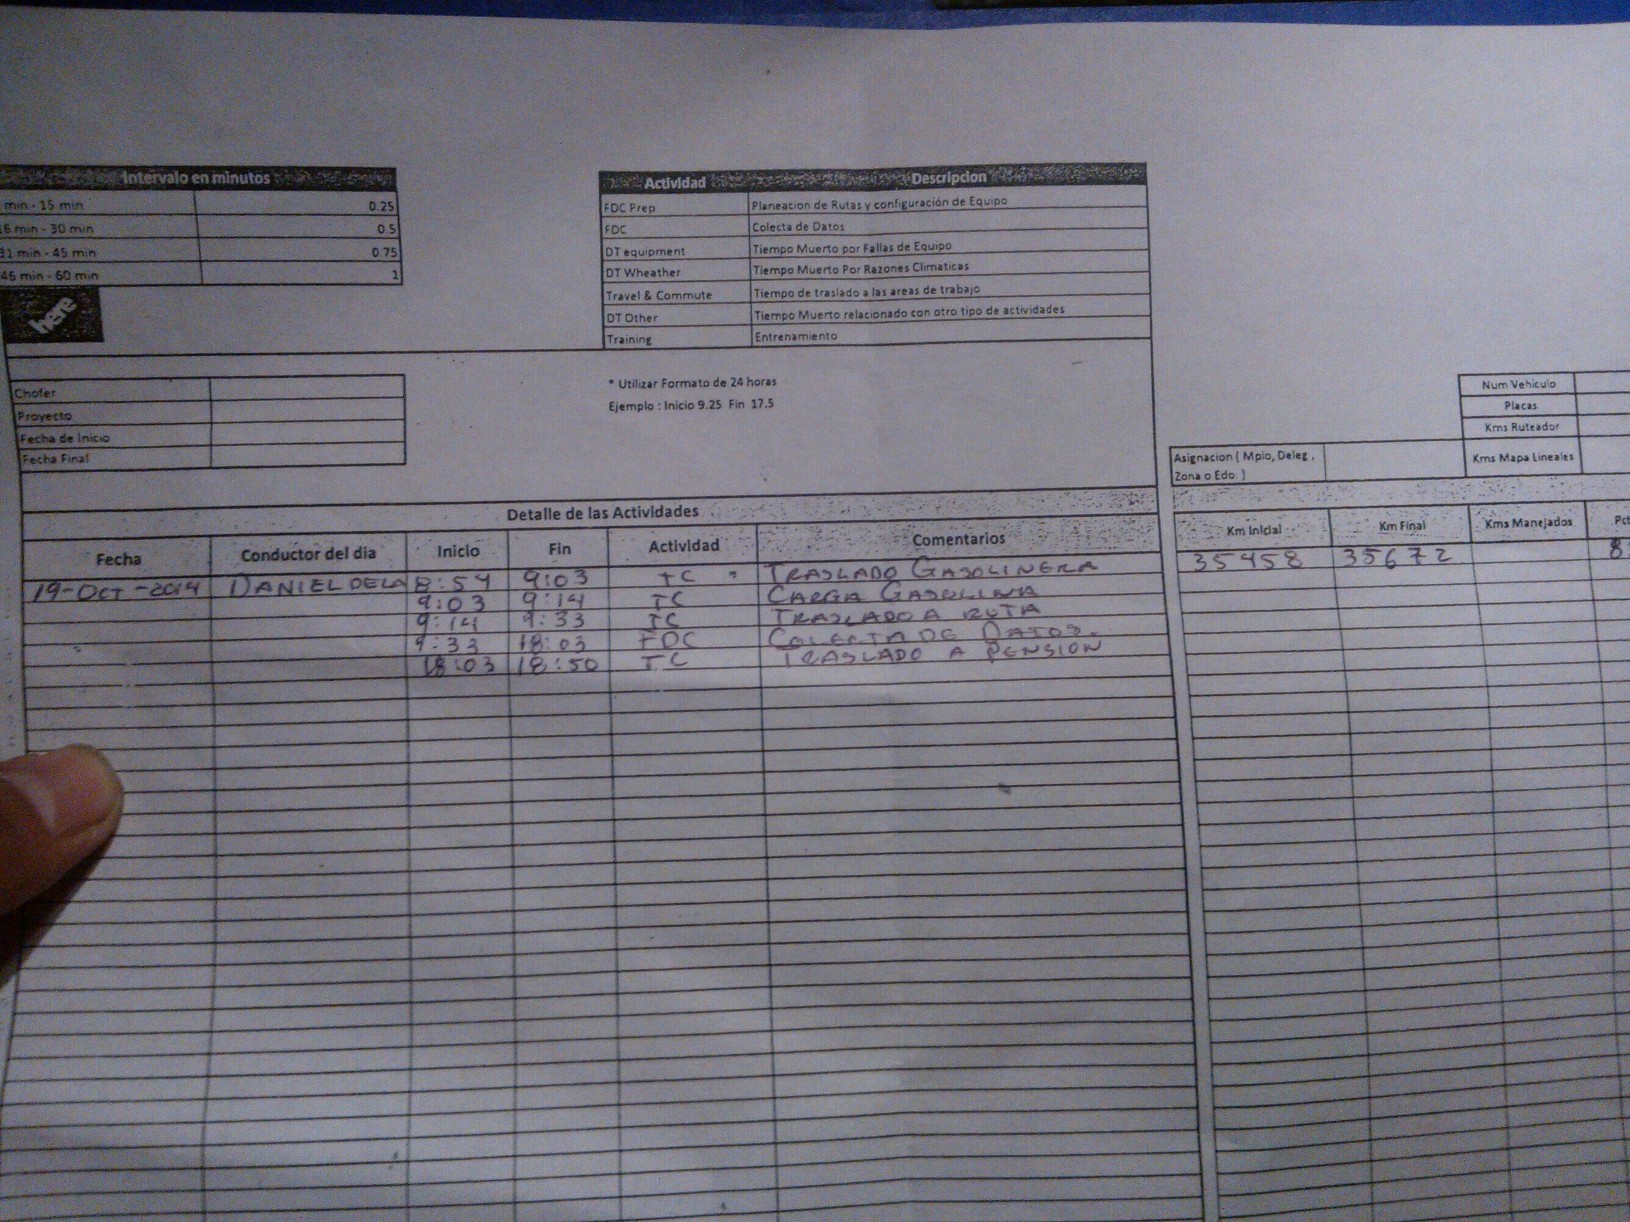 Intervalo en minutos
min - 15 min 0.25
6 min - 30 min 0.5
31 min - 45 min 0.75
46 min - 60 min 1
here
Actividad Descripcion
FDC Prep Planeacion de Rutas y configuración de Equipo
FDC Colecta de Datos
DT equipment Tiempo Muerto por Fallas de Equipo
DT Wheather Tiempo Muerto Por Razones Climaticas
Travel & Commute Tiempo de traslado a las areas de trabajo
DT Other Tiempo Muerto relacionado con otro tipo de actividades
Training Entrenamiento
Chofer
Proyecto
Fecha de Inicio
Fecha Final
* Utilizar Formato de 24 horas
Ejemplo : Inicio 9.25 Fin 17.5
Num Vehiculo
Placas
Kms Ruteador
Kms Mapa Lineales
Asignacion ( Mpio, Deleg ,
Zona o Edo. )
Detalle de las Actividades
Fecha Conductor del dia Inicio Fin Actividad Comentarios Km Inicial Km Final Kms Manejados Pct
19-OCT-2014 DANIEL DELA 8:54 9:03 TC TRASLADO GASOLINERA 35458 35672 8
9:03 9:14 TC CARGA GASOLINA
9:14 9:33 TC TRASLADO A RUTA
9:33 18:03 FDC COLECTA DE DATOS.
18:03 18:50 TC TRASLADO A PENSION